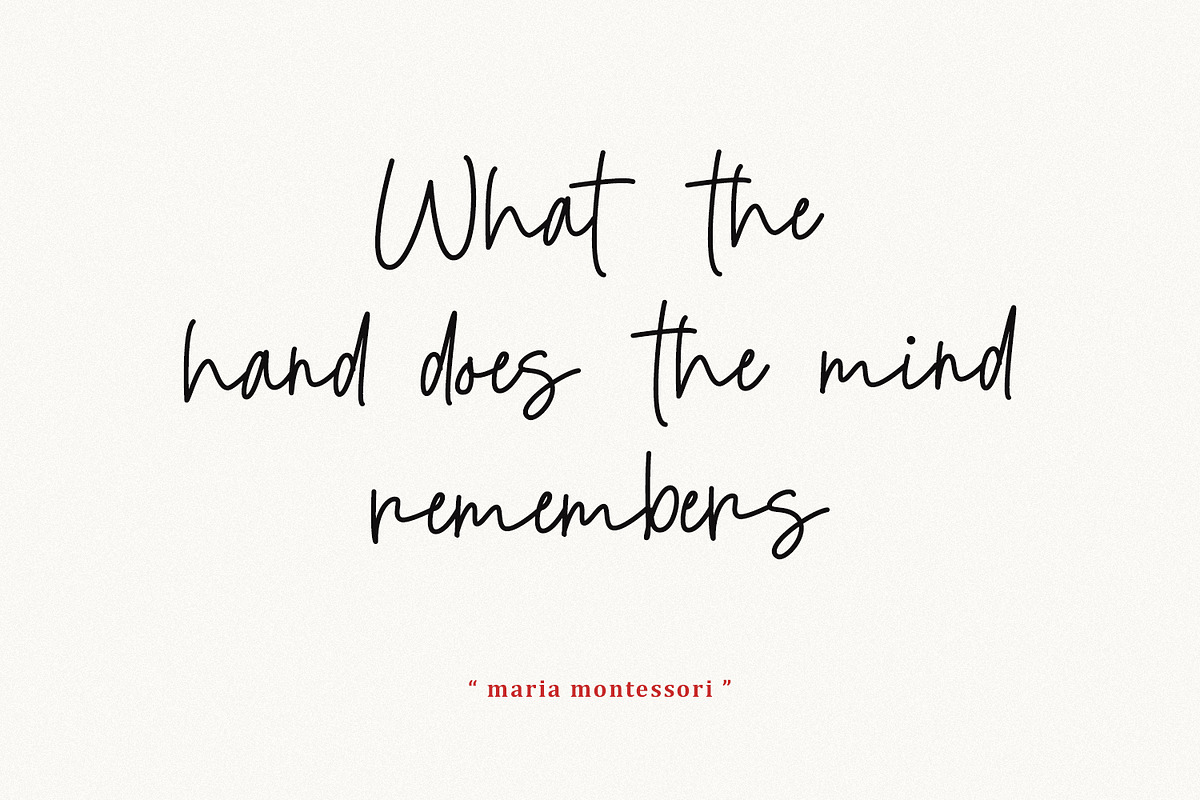 What the
hand does the mind
remembers
“ maria montessori ”